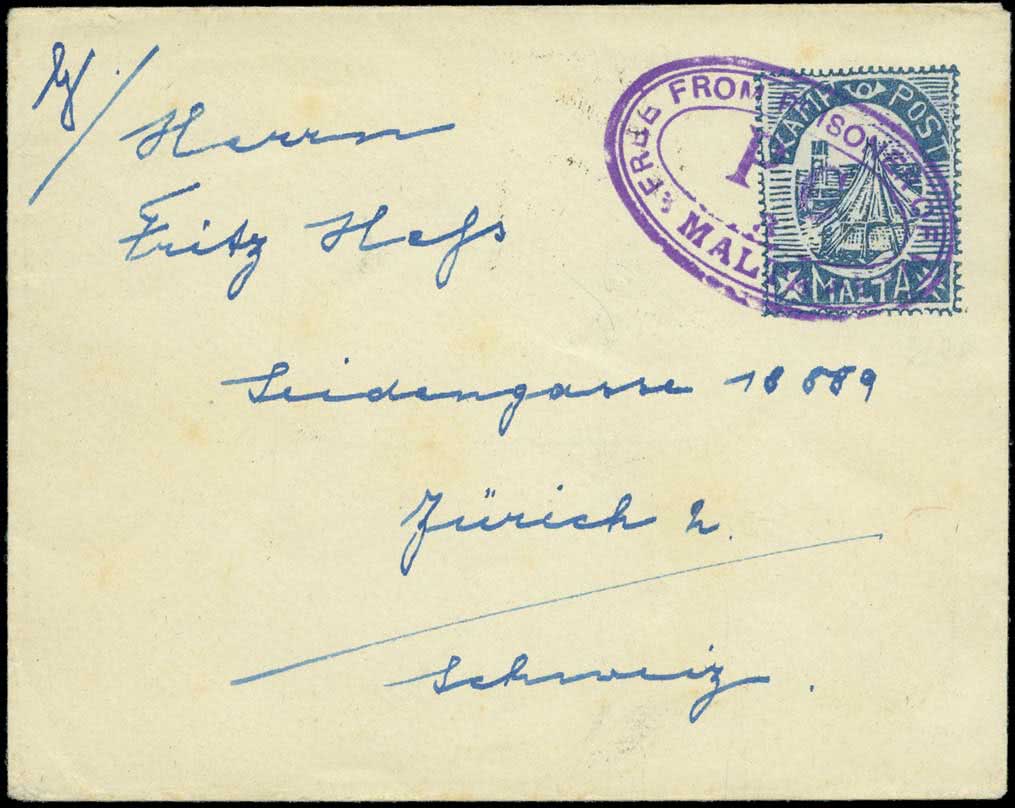 Herrn
Fritz Hess
Seidengasse 18 889
Zürich 2.
Schweiz.
FREE FROM PRISONER OF
P
MALTA
KAMP POST
MALTA